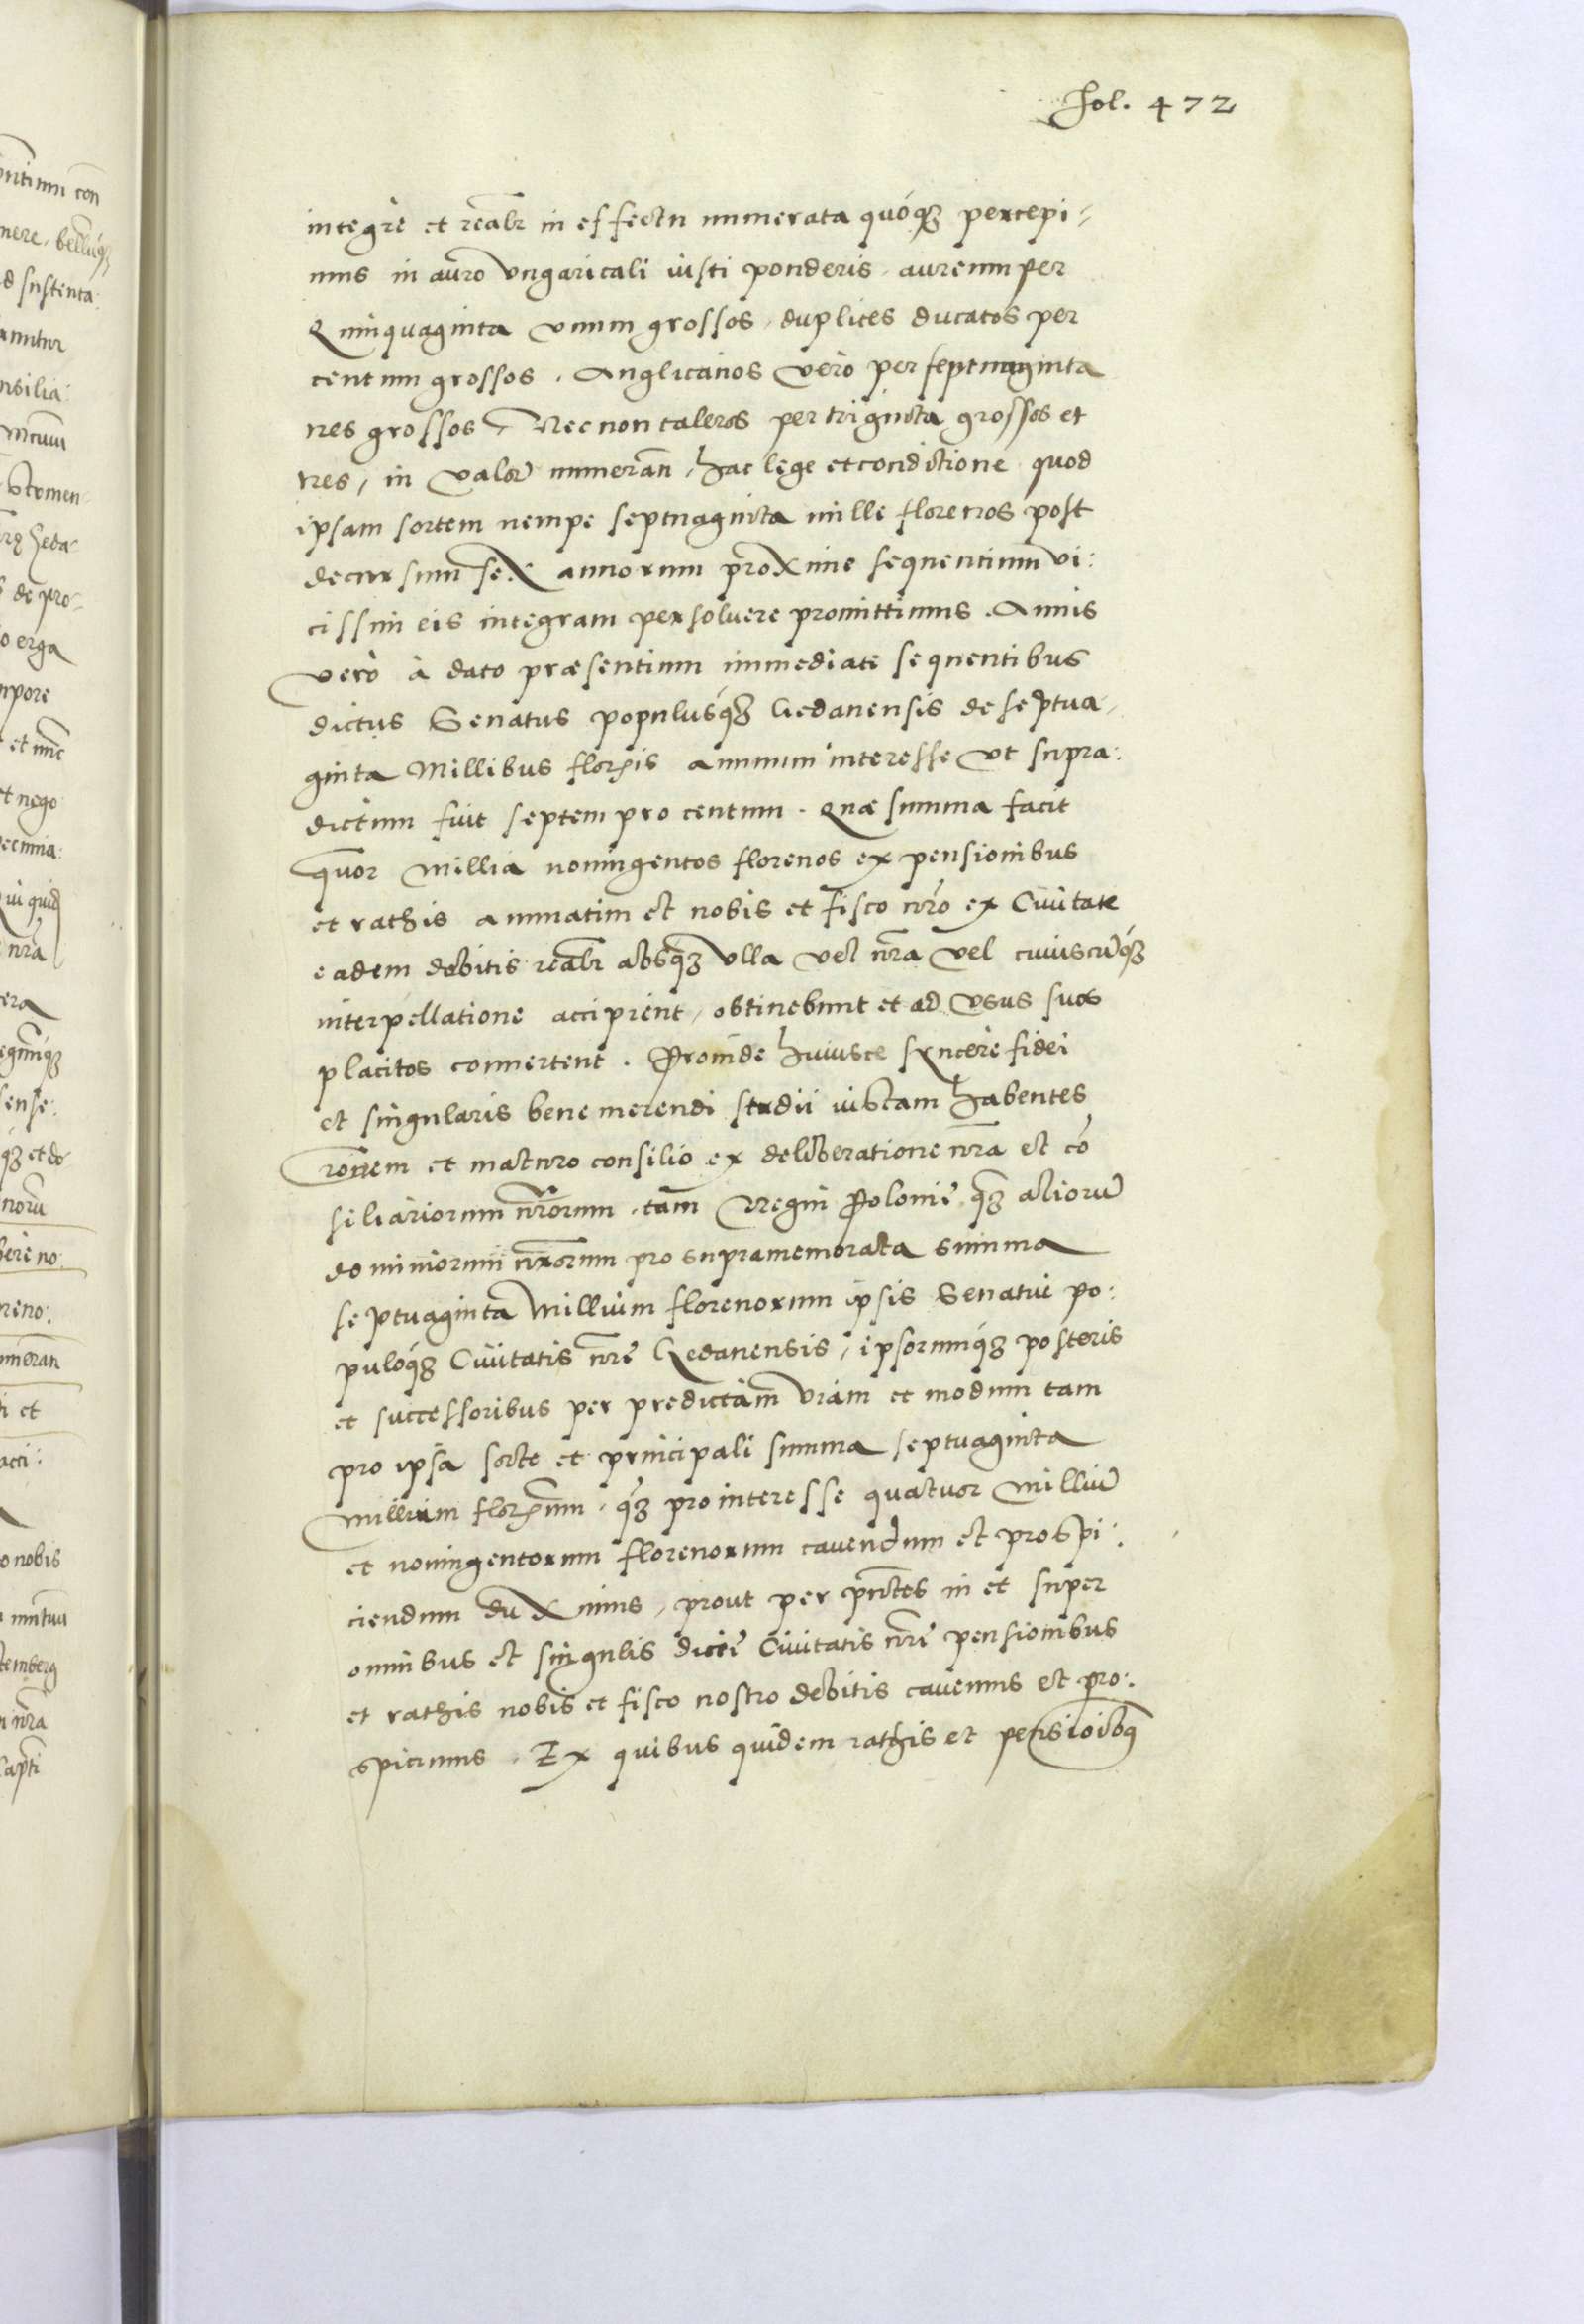 Fol. 472
integre et realr in effectu numerata quóqz percepi-
mus in auro Vngaricali iusti ponderis, aureum per
Quinquaginta vnum grossos, duplices ducatos per
centum grossos, Anglicanos vero per septuaginta
tres grossos, Nec non taleros per triginta grossos et
tres, in valorē numeran̄, hac lege et conditione quod
ipsam sortem nempe septuaginta mille florenos post
decursum sex annorum proxime sequentium vi:
cissim eis integram persoluere promittimus. Annis
vero à dato præsentium immediate sequentibus
dictus Senatus populusqz Gedanensis de septua-
ginta Millibus florēis annuum interesse vt supra:
dictum fuit septem pro centum. Quæ summa facit
qtuor Millia noningentos florenos ex pensionibus
et rathis annuatim et nobis et fisco nrō ex Ciuitate
eadem debitis realr absqz vlla vel nrā vel cuiuscūqz
interpellatione accipient, obtinebunt et ad vsus suos
placitos conuertent. Proinde huiusce syncere fidei
et singularis bene merendi studii iustam habentes
rōnem et maturo consilio ex deliberatione nrā et cō
siliariorum nrōrum, tam Regni Polonie qz aliorū
dominiorum nrōrum pro supramemorata summa
septuaginta Millium florenorum ipsis Senatui po:
puloqz Ciuitatis nrē Gedanensis, ipsorumqz posteris
et successoribus per predictam viam et modum tam
pro ipsa sorte et principali summa septuaginta
Millium florēnum, qz pro interesse quatuor Milliū
et noningentorum florenorum cauendum et prospi:
ciendum duximus, prout per pn̄tes in et super
omnibus et singulis dictē Ciuitatis nrē pensionibus
et rathis nobis et fisco nostro debitis cauemus et pro:
spicimus. Ex quibus quidem rathis et pensioibq